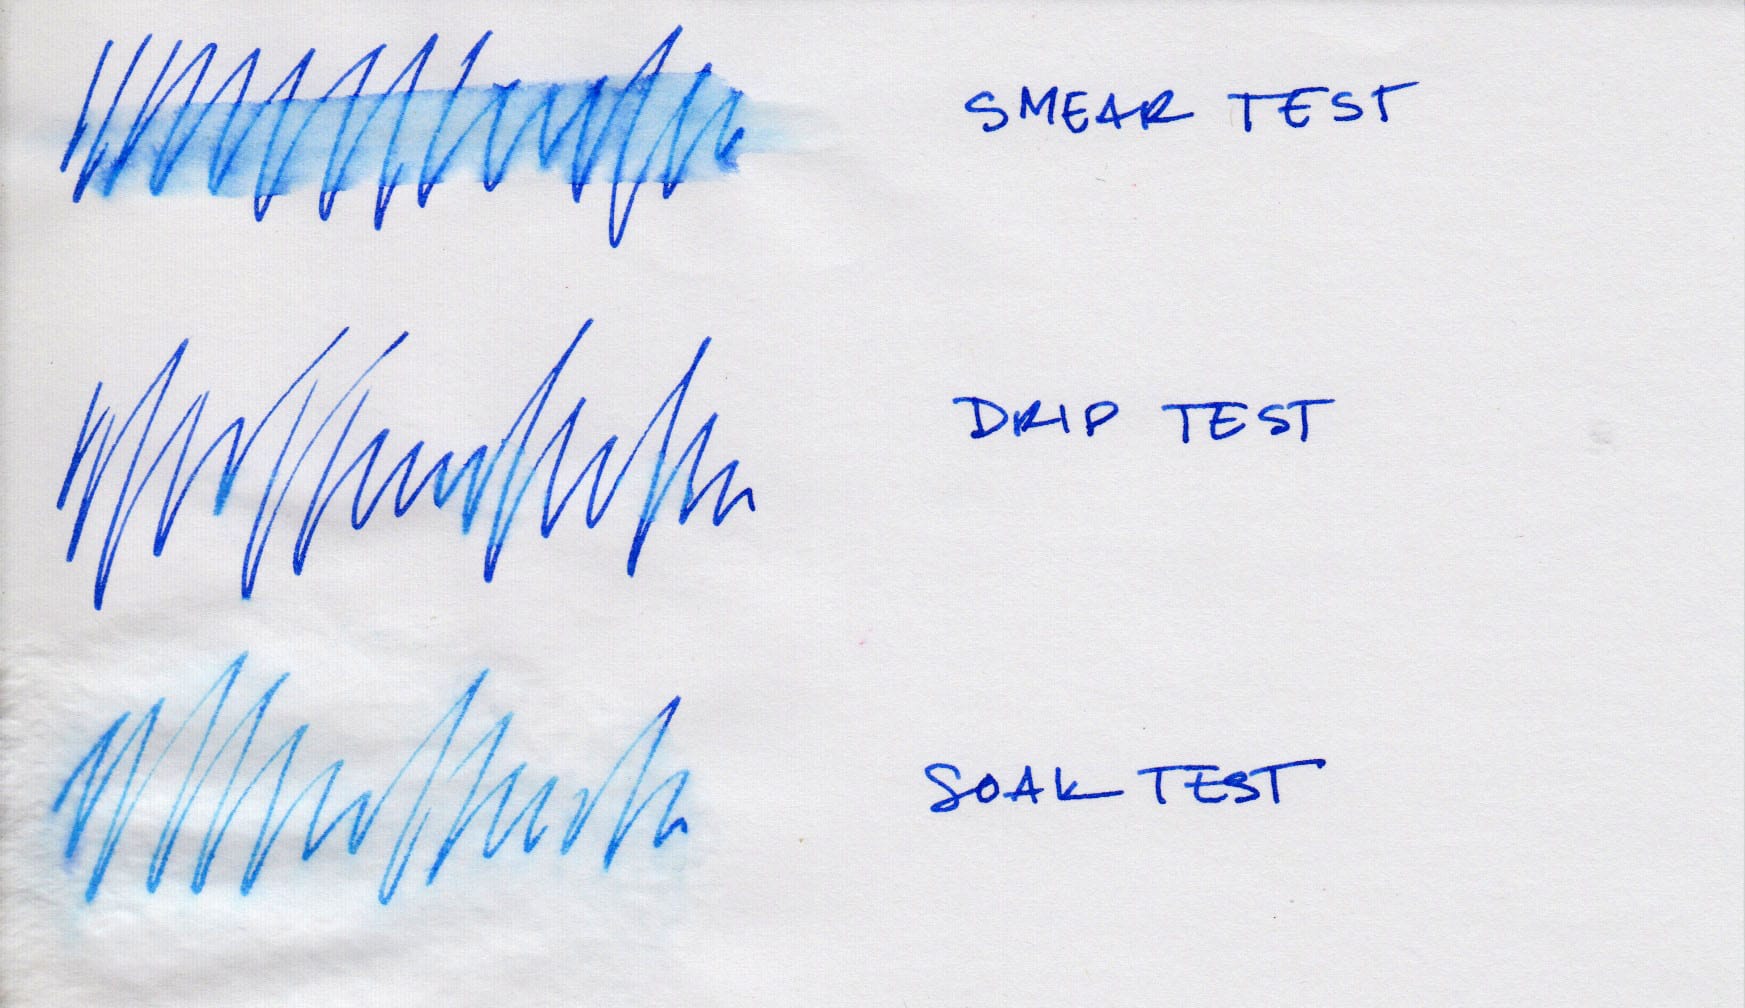 SMEAR TEST
DRIP TEST
SOAK TEST